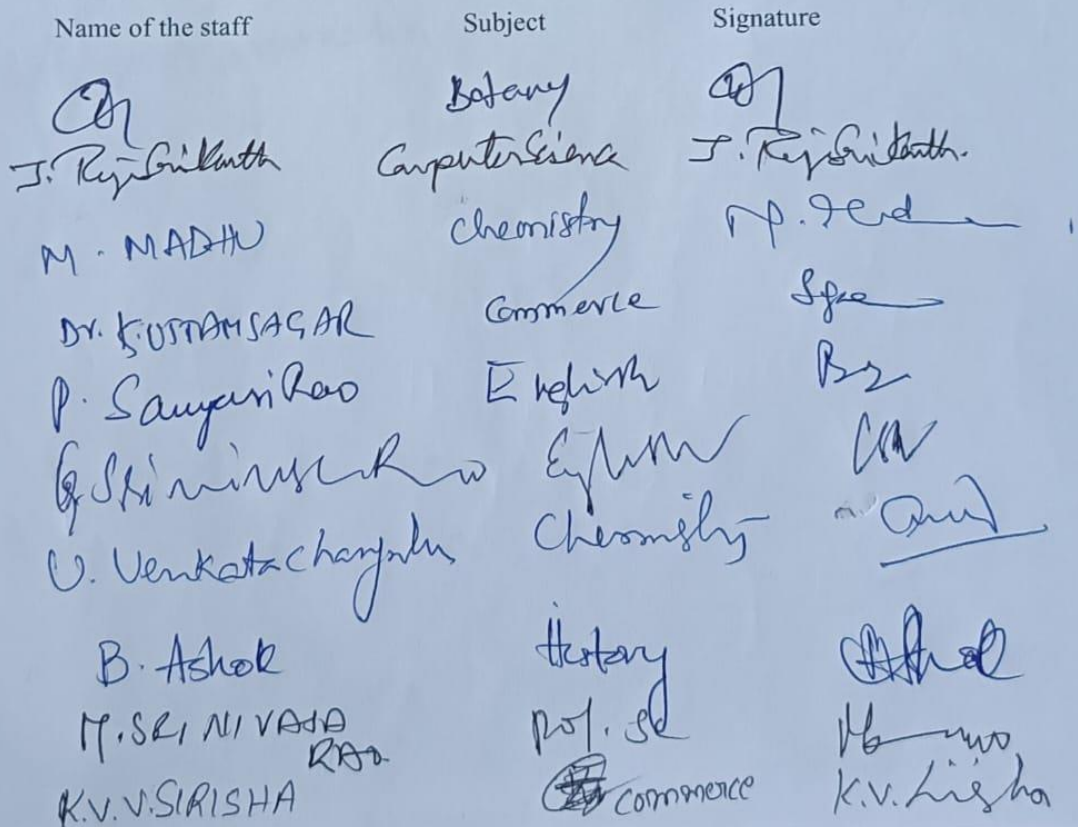 Name of the staff Subject Signature
Botany
J. Raj Srikanth Computer Science J. Raj Srikanth.
M. MADHU Chemistry
Dr. K. UTTAMSAGAR Commerce
P. Sanyasi Rao English
G Srinivasa Rao
U. Venkatacharyulu Chemistry
B. Ashok History Ashok
M. SRINIVASA RAO Pol. Sc
K.V.V. SIRISHA Commerce K.V. Sirisha